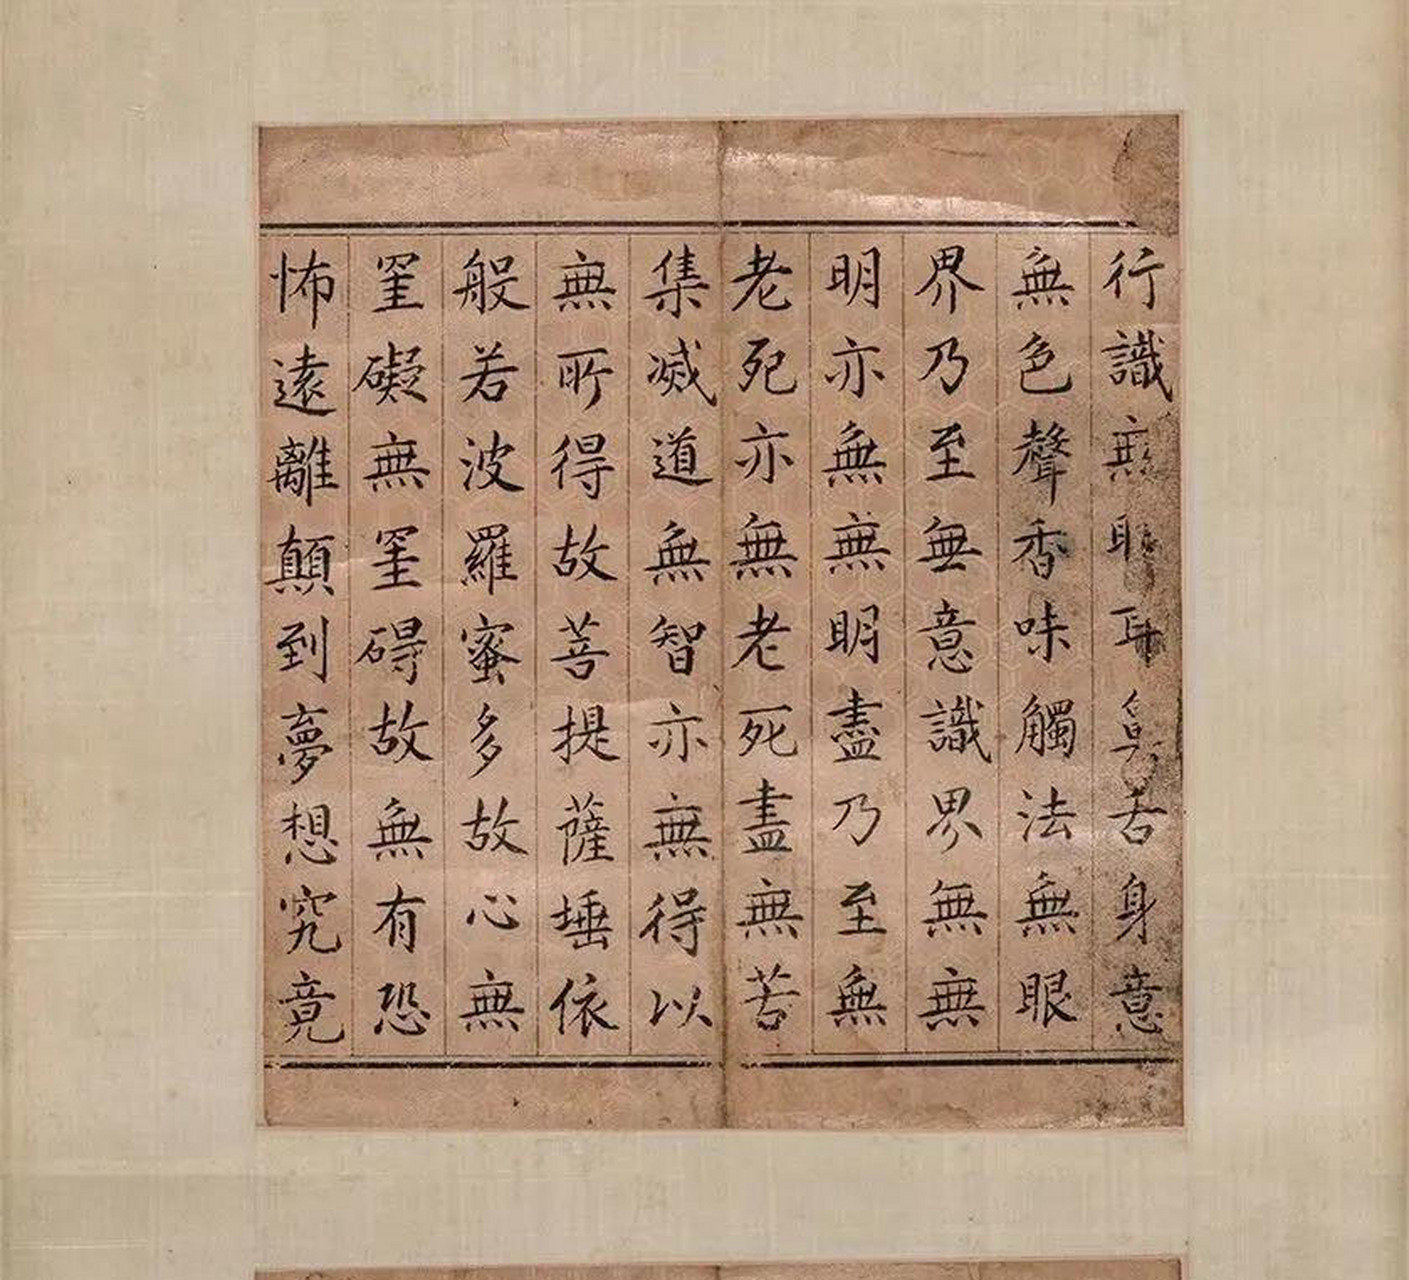 行識無眼耳鼻舌身意
無色聲香味觸法無眼
界乃至無意識界無無
明亦無無明盡乃至無
老死亦無老死盡無苦
集滅道無智亦無得以
無所得故菩提薩埵依
般若波羅蜜多故心無
罣礙無罣碍故無有恐
怖遠離顛到夢想究竟